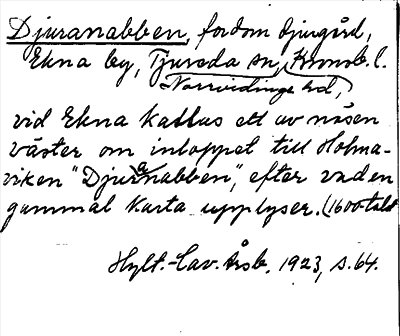 Djuranabben, fordom djurgård,
Ekna by, Tjureda sn, Kronob. l.
Norrvidinge hd,
vid Ekna kallas ett av näsen
väster om inloppet till Holma-
viken "Djuranabben", efter vad en
gammal karta upplyser. (1600-talet
Hylt.-Cav. Årsb. 1923, s. 64.